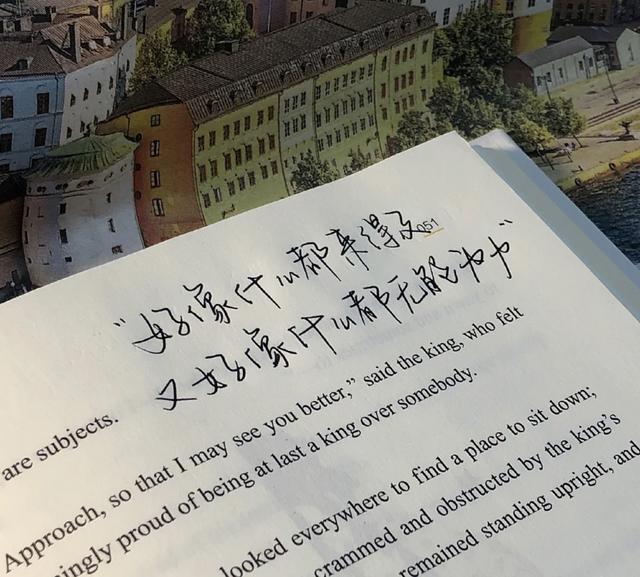 “好像什么都来得及
051
又好像什么都无能为力”
are subjects.
Approach, so that I may see you better,” said the king, who felt
ingly proud of being at last a king over somebody.
looked everywhere to find a place to sit down;
crammed and obstructed by the king’s
remained standing upright, and